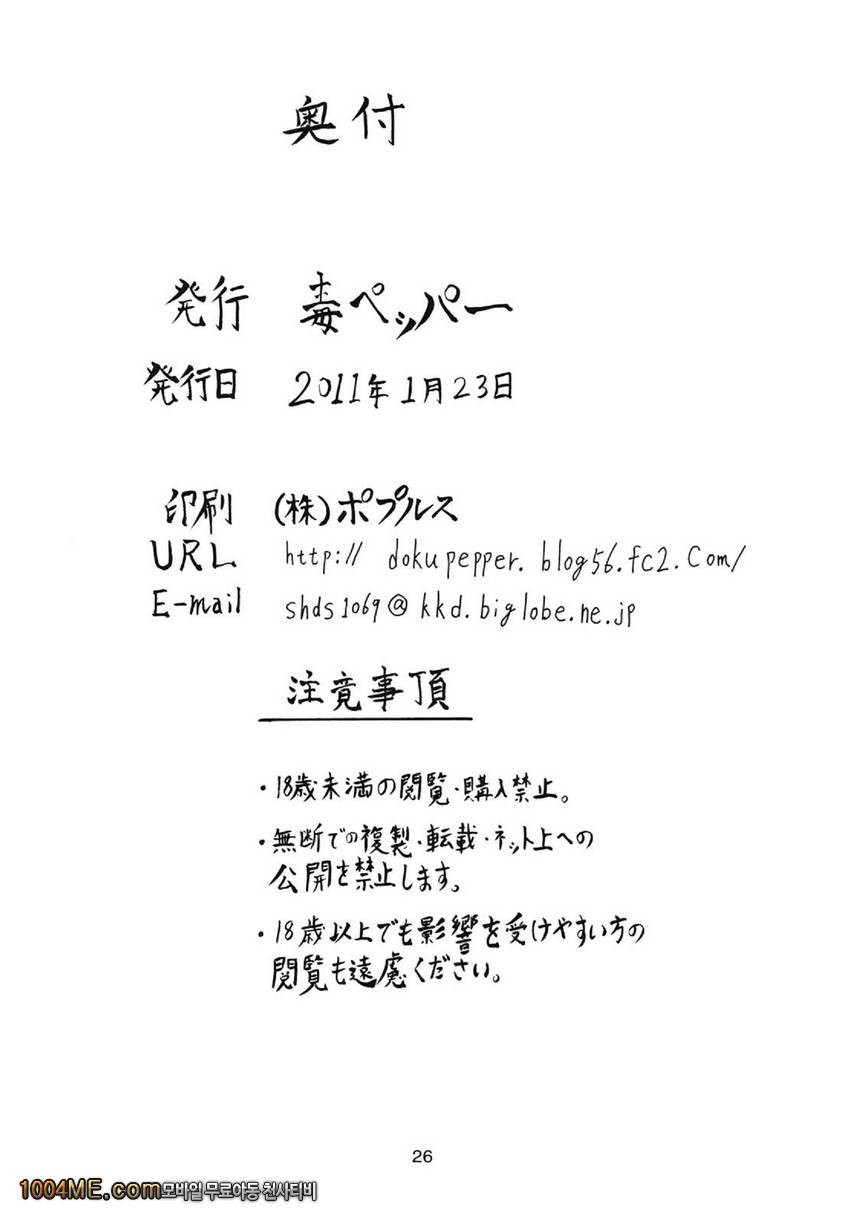 奥付
発行 毒ペッパー
発行日 2011年1月23日
印刷 (株)ポプルス
URL http://dokupepper.blog56.fc2.com/
E-mail shds1069@kkd.biglobe.ne.jp
注意事項
・18歳未満の閲覧・購入禁止。
・無断での複製・転載・ネット上への
公開を禁止します。
・18歳以上でも影響を受けやすい方の
閲覧も遠慮ください。
26
1004ME.com모바일 무료야동 천사티비